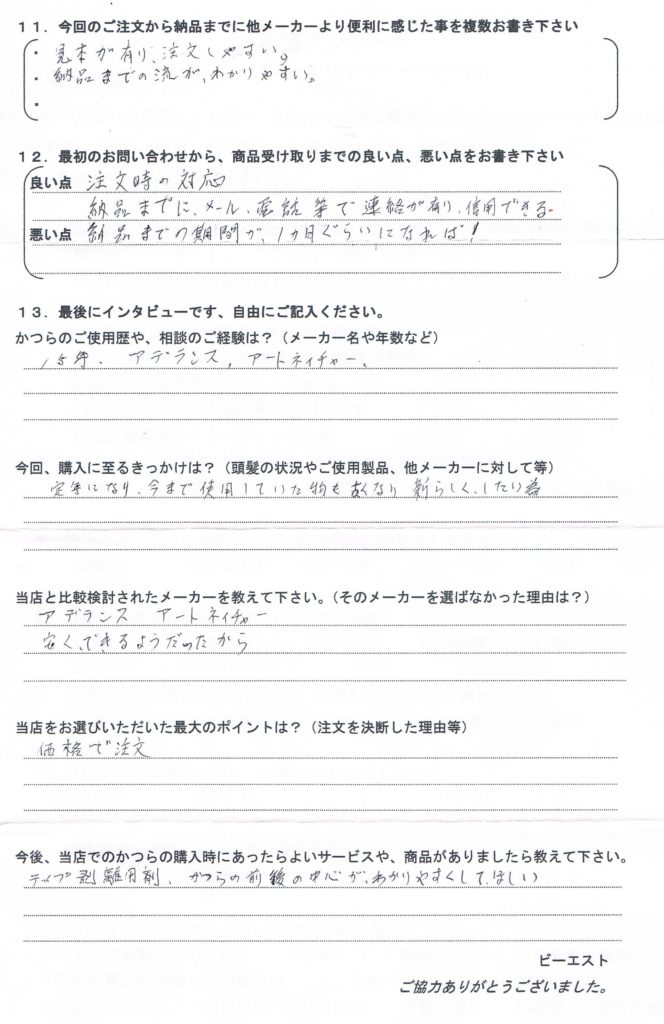 １１．今回のご注文から納品までに他メーカーより便利に感じた事を複数お書き下さい
・見本が有り、注文しやすい。
・納品までの流が、わかりやすい。
・
１２．最初のお問い合わせから、商品受け取りまでの良い点、悪い点をお書き下さい
良い点 注文時の対応
納品までに、メール、電話等で連絡が有り、信用できる。
悪い点 納品までの期間が、１カ月ぐらいになれば！
１３．最後にインタビューです、自由にご記入ください。
かつらのご使用歴や、相談のご経験は？（メーカー名や年数など）
１５年、 アデランス， アートネイチャー、
今回、購入に至るきっかけは？（頭髪の状況やご使用製品、他メーカーに対して等）
定年になり、今まで使用していた物も古くなり 新らしく、したい為
当店と比較検討されたメーカーを教えて下さい。（そのメーカーを選ばなかった理由は？）
アデランス アートネイチャー
安く、できるようだったから
当店をお選びいただいた最大のポイントは？（注文を決断した理由等）
価格で注文
今後、当店でのかつらの購入時にあったらよいサービスや、商品がありましたら教えて下さい。
テープ剥離用剤、かつらの前後の中心が、わかりやすくして、ほしい
ビーエスト
ご協力ありがとうございました。